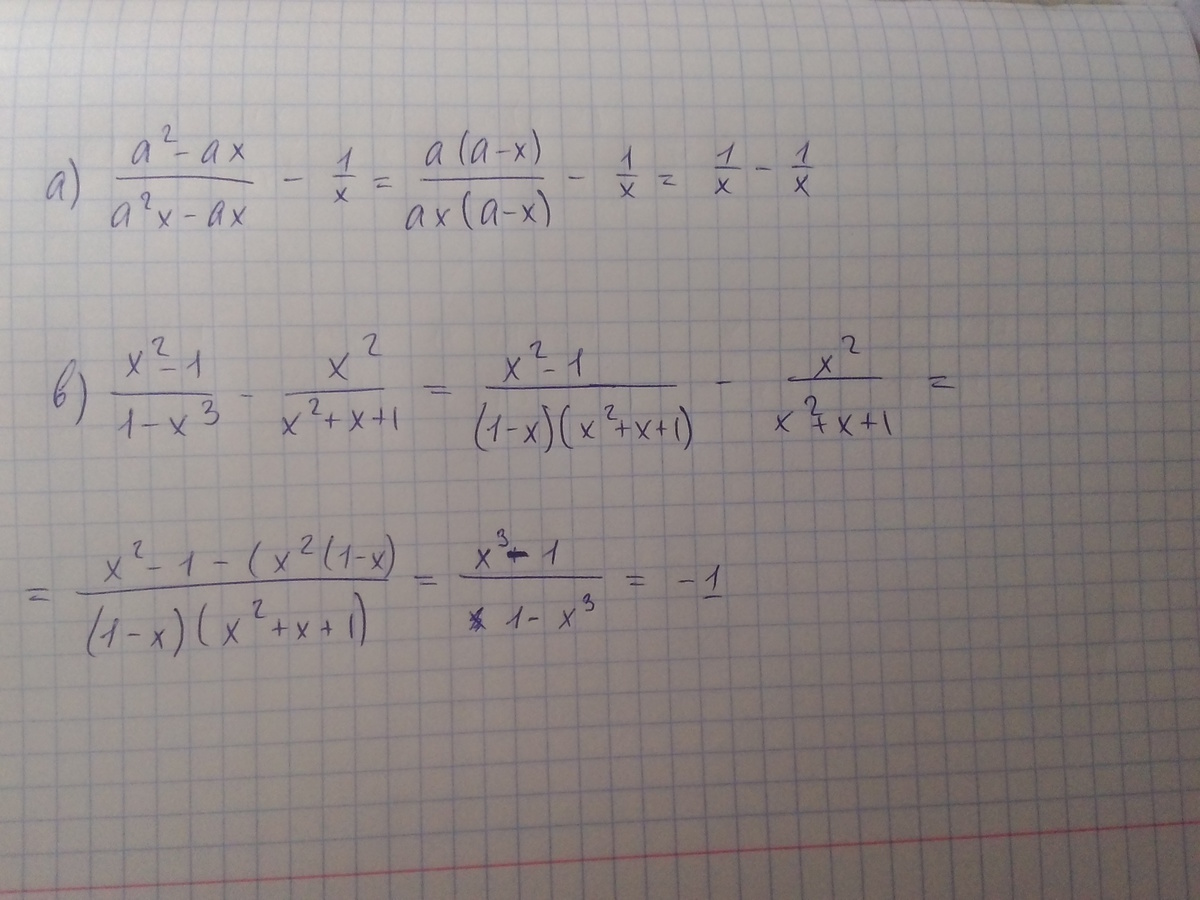 а) (a² - ax)/(a²x - ax) - 1/x = a(a-x)/(ax(a-x)) - 1/x = 1/x - 1/x
в) (x² - 1)/(1 - x³) - x²/(x² + x + 1) = (x² - 1)/((1-x)(x² + x + 1)) - x²/(x² + x + 1) =
= (x² - 1 - (x²(1-x))/((1-x)(x² + x + 1)) = (x³ - 1)/(1 - x³) = -1